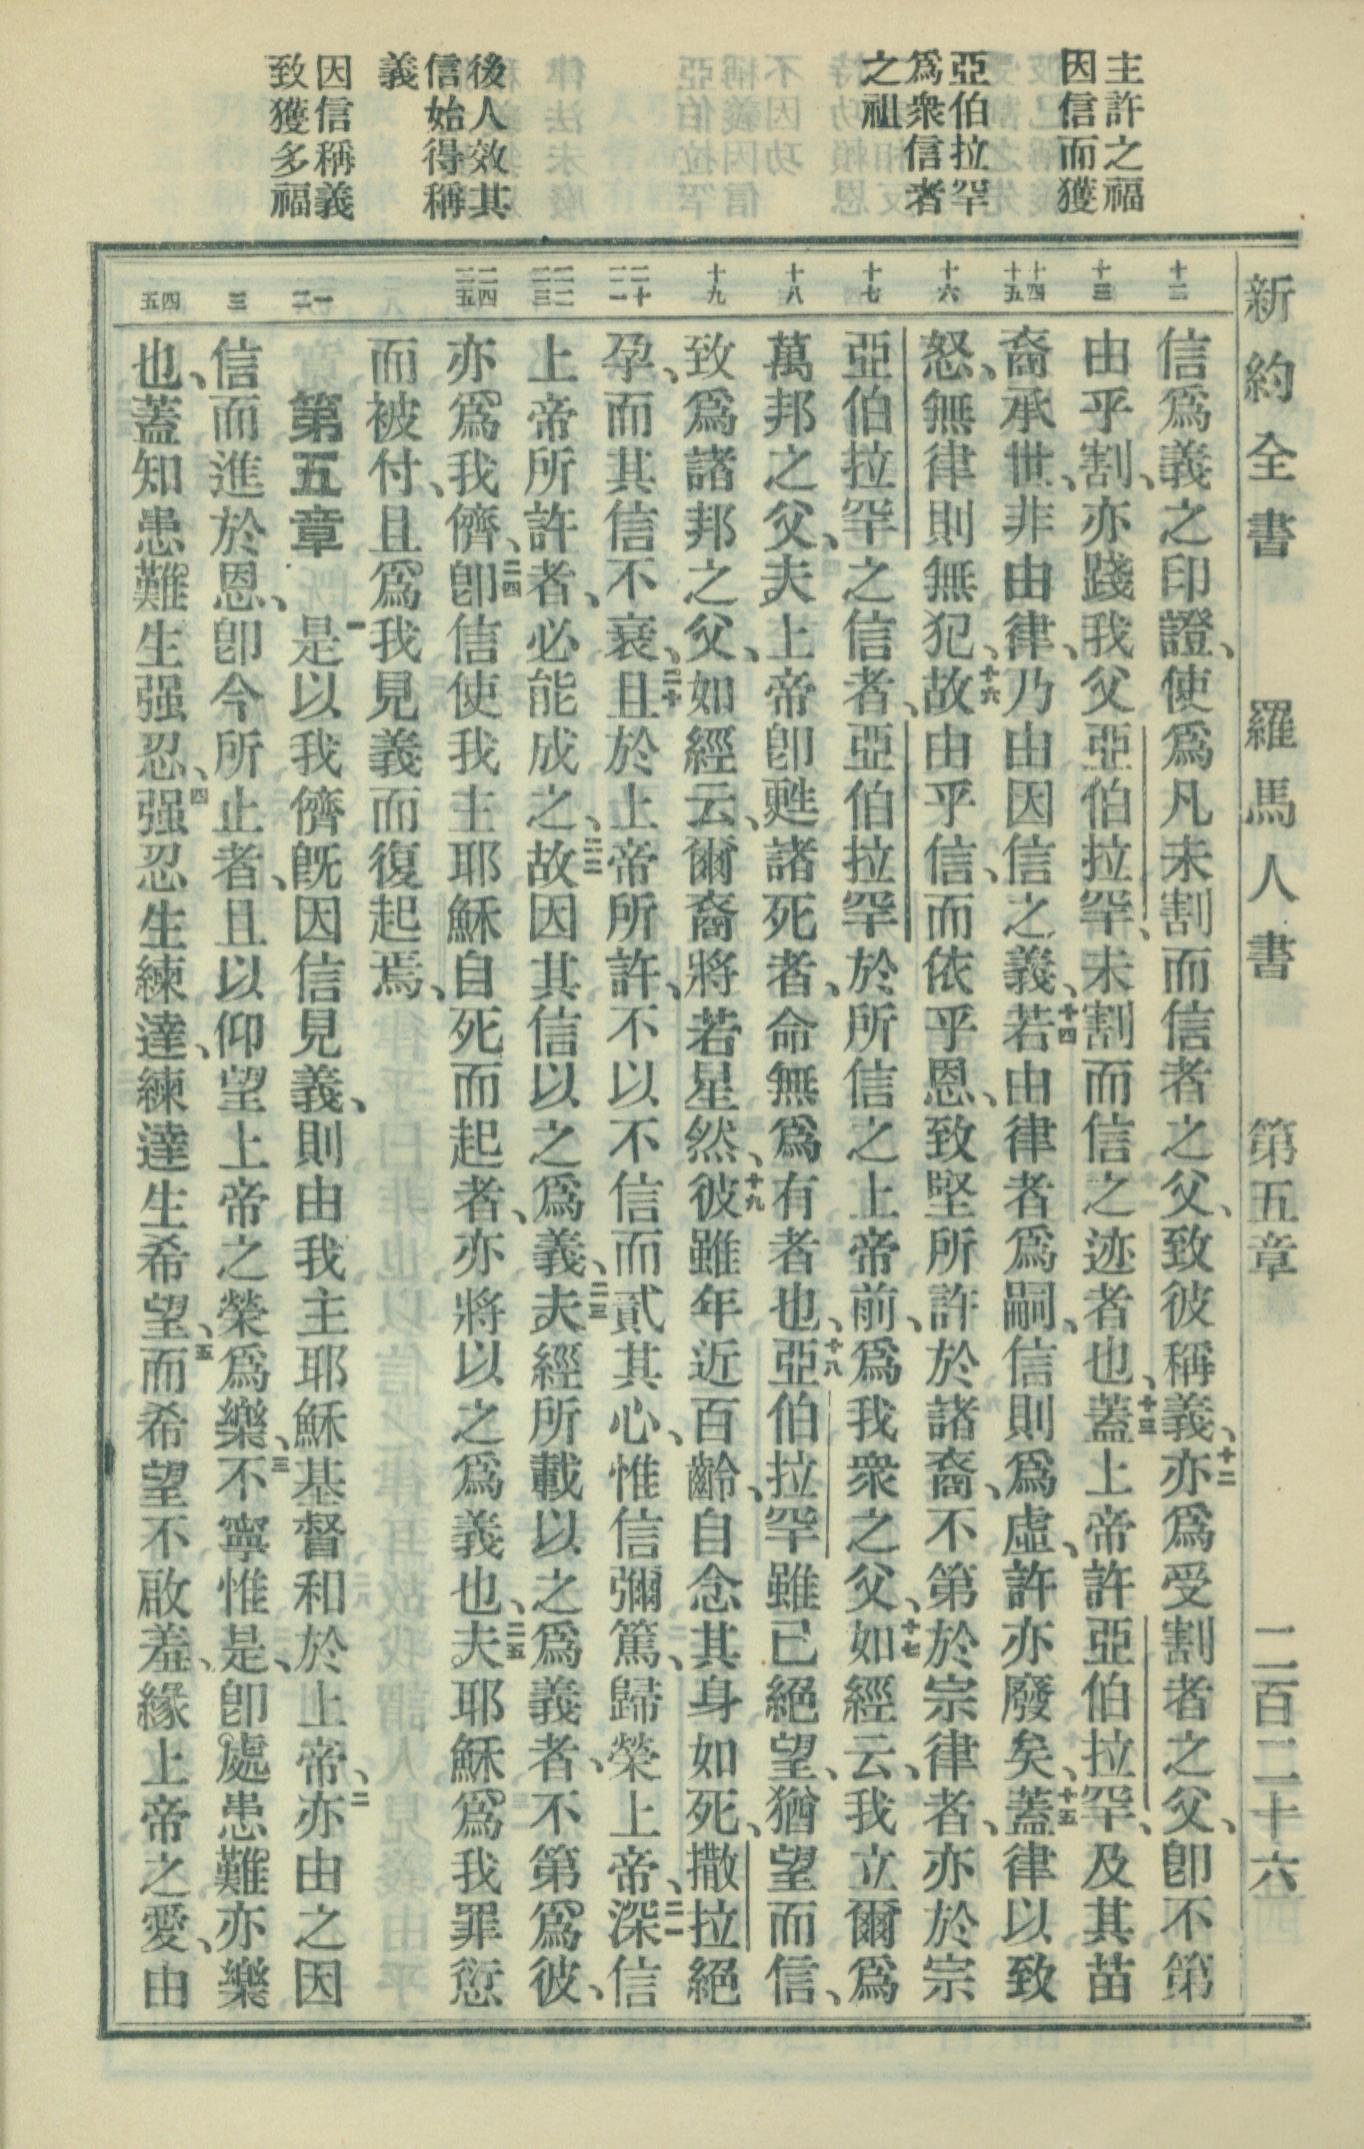 新約全書　羅馬人書　第五章　二百二十六
主許之福
因信而獲
亞伯拉罕
爲衆信者
之祖
後人效其
信始得稱
義
因信稱義
致獲多福
十二
十三
十四
十五
十六
十七
十八
十九
二十
二一
二二
二三
二四
二五
一
二
三
四
五
信爲義之印證、使爲凡未割而信者之父、致彼稱義、十二亦爲受割者之父、卽不第
由乎割、亦踐我父亞伯拉罕、未割而信之迹者也、十三蓋上帝許亞伯拉罕、及其苗
裔承世、非由律、乃由因信之義、十四若由律者爲嗣、信則爲虛、許亦廢矣、十五蓋律以致
怒、無律則無犯、十六故由乎信、而依乎恩、致堅所許於諸裔、不第於宗律者、亦於宗
亞伯拉罕之信者、亞伯拉罕於所信之上帝前、爲我衆之父、十七如經云、我立爾爲
萬邦之父、夫上帝卽甦諸死者、命無爲有者也、十八亞伯拉罕雖已絕望、猶望而信、
致爲諸邦之父、如經云、爾裔將若星然、十九彼雖年近百齡、自念其身如死、撒拉絕
孕、而其信不衰、二十且於上帝所許、不以不信而貳其心、惟信彌篤、歸榮上帝、二一深信
上帝所許者、必能成之、二二故因其信以之爲義、二三夫經所載以之爲義者、不第爲彼、
亦爲我儕、二四卽信使我主耶穌自死而起者、亦將以之爲義也、二五夫耶穌爲我罪愆
而被付、且爲我見義而復起焉、
第五章　一是以我儕旣因信見義、則由我主耶穌基督和於上帝、二亦由之因
信而進於恩、卽今所止者、且以仰望上帝之榮爲樂、三不寧惟是、卽處患難亦樂
也、蓋知患難生强忍、四强忍生練達、練達生希望、五而希望不啟羞、緣上帝之愛、由